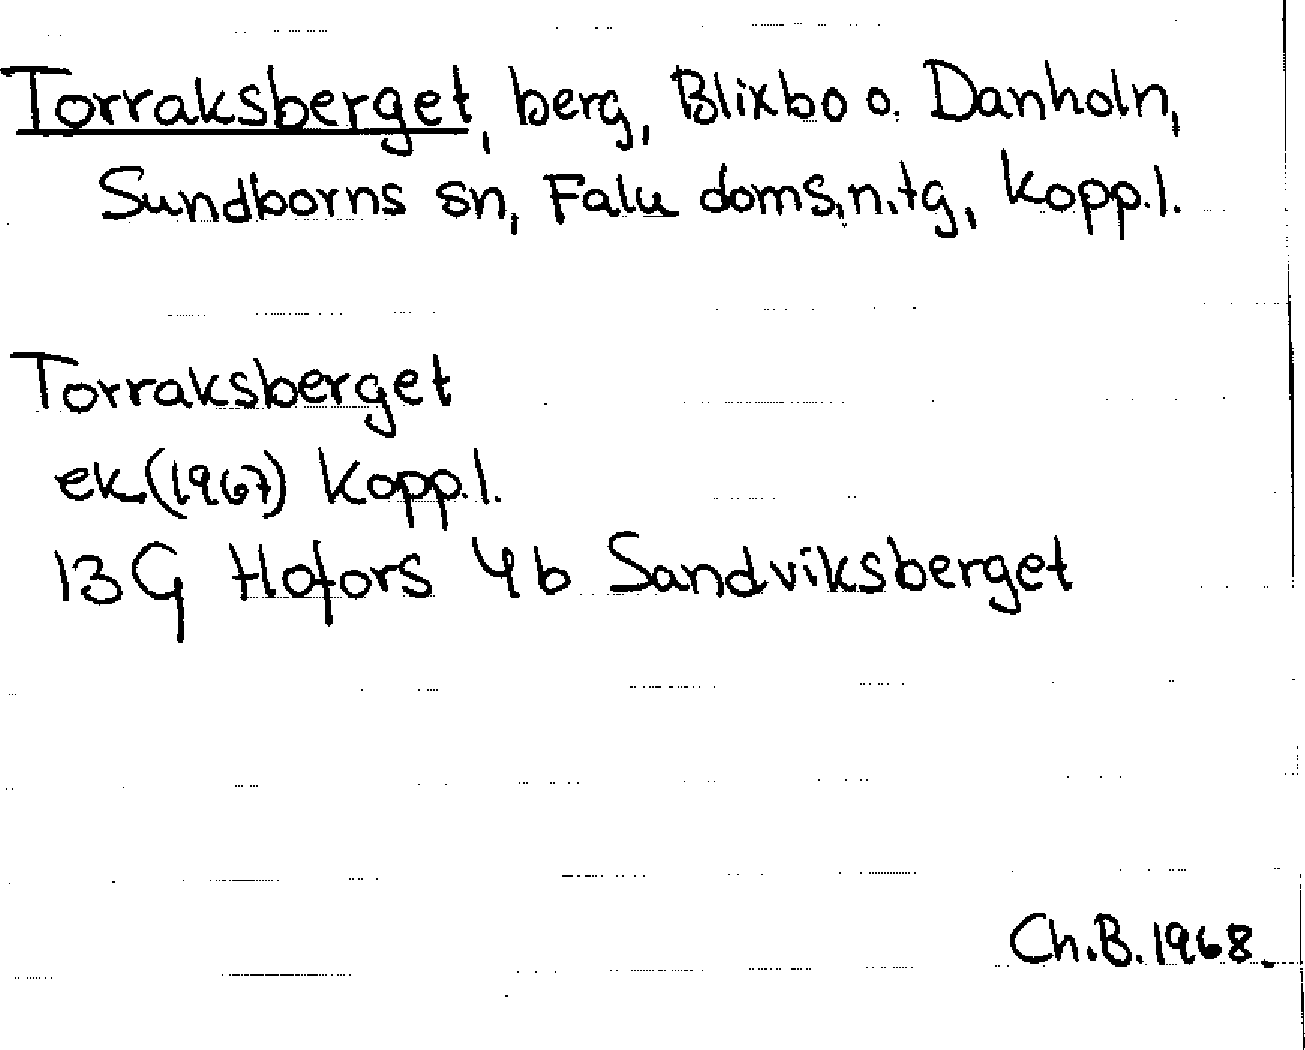 Torraksberget, berg, Blixbo o. Danholn,
Sundborns sn, Falu doms.n.tg, Kopp.l.
Torraksberget
ek (1967) Kopp.l.
13G Hofors 4b Sandviksberget
Ch.B. 1968.